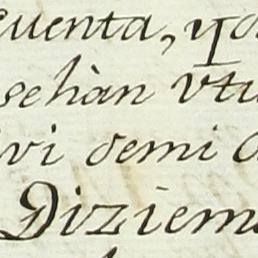 cuenta, y
sehàn vtu
ivi demi
Diziem